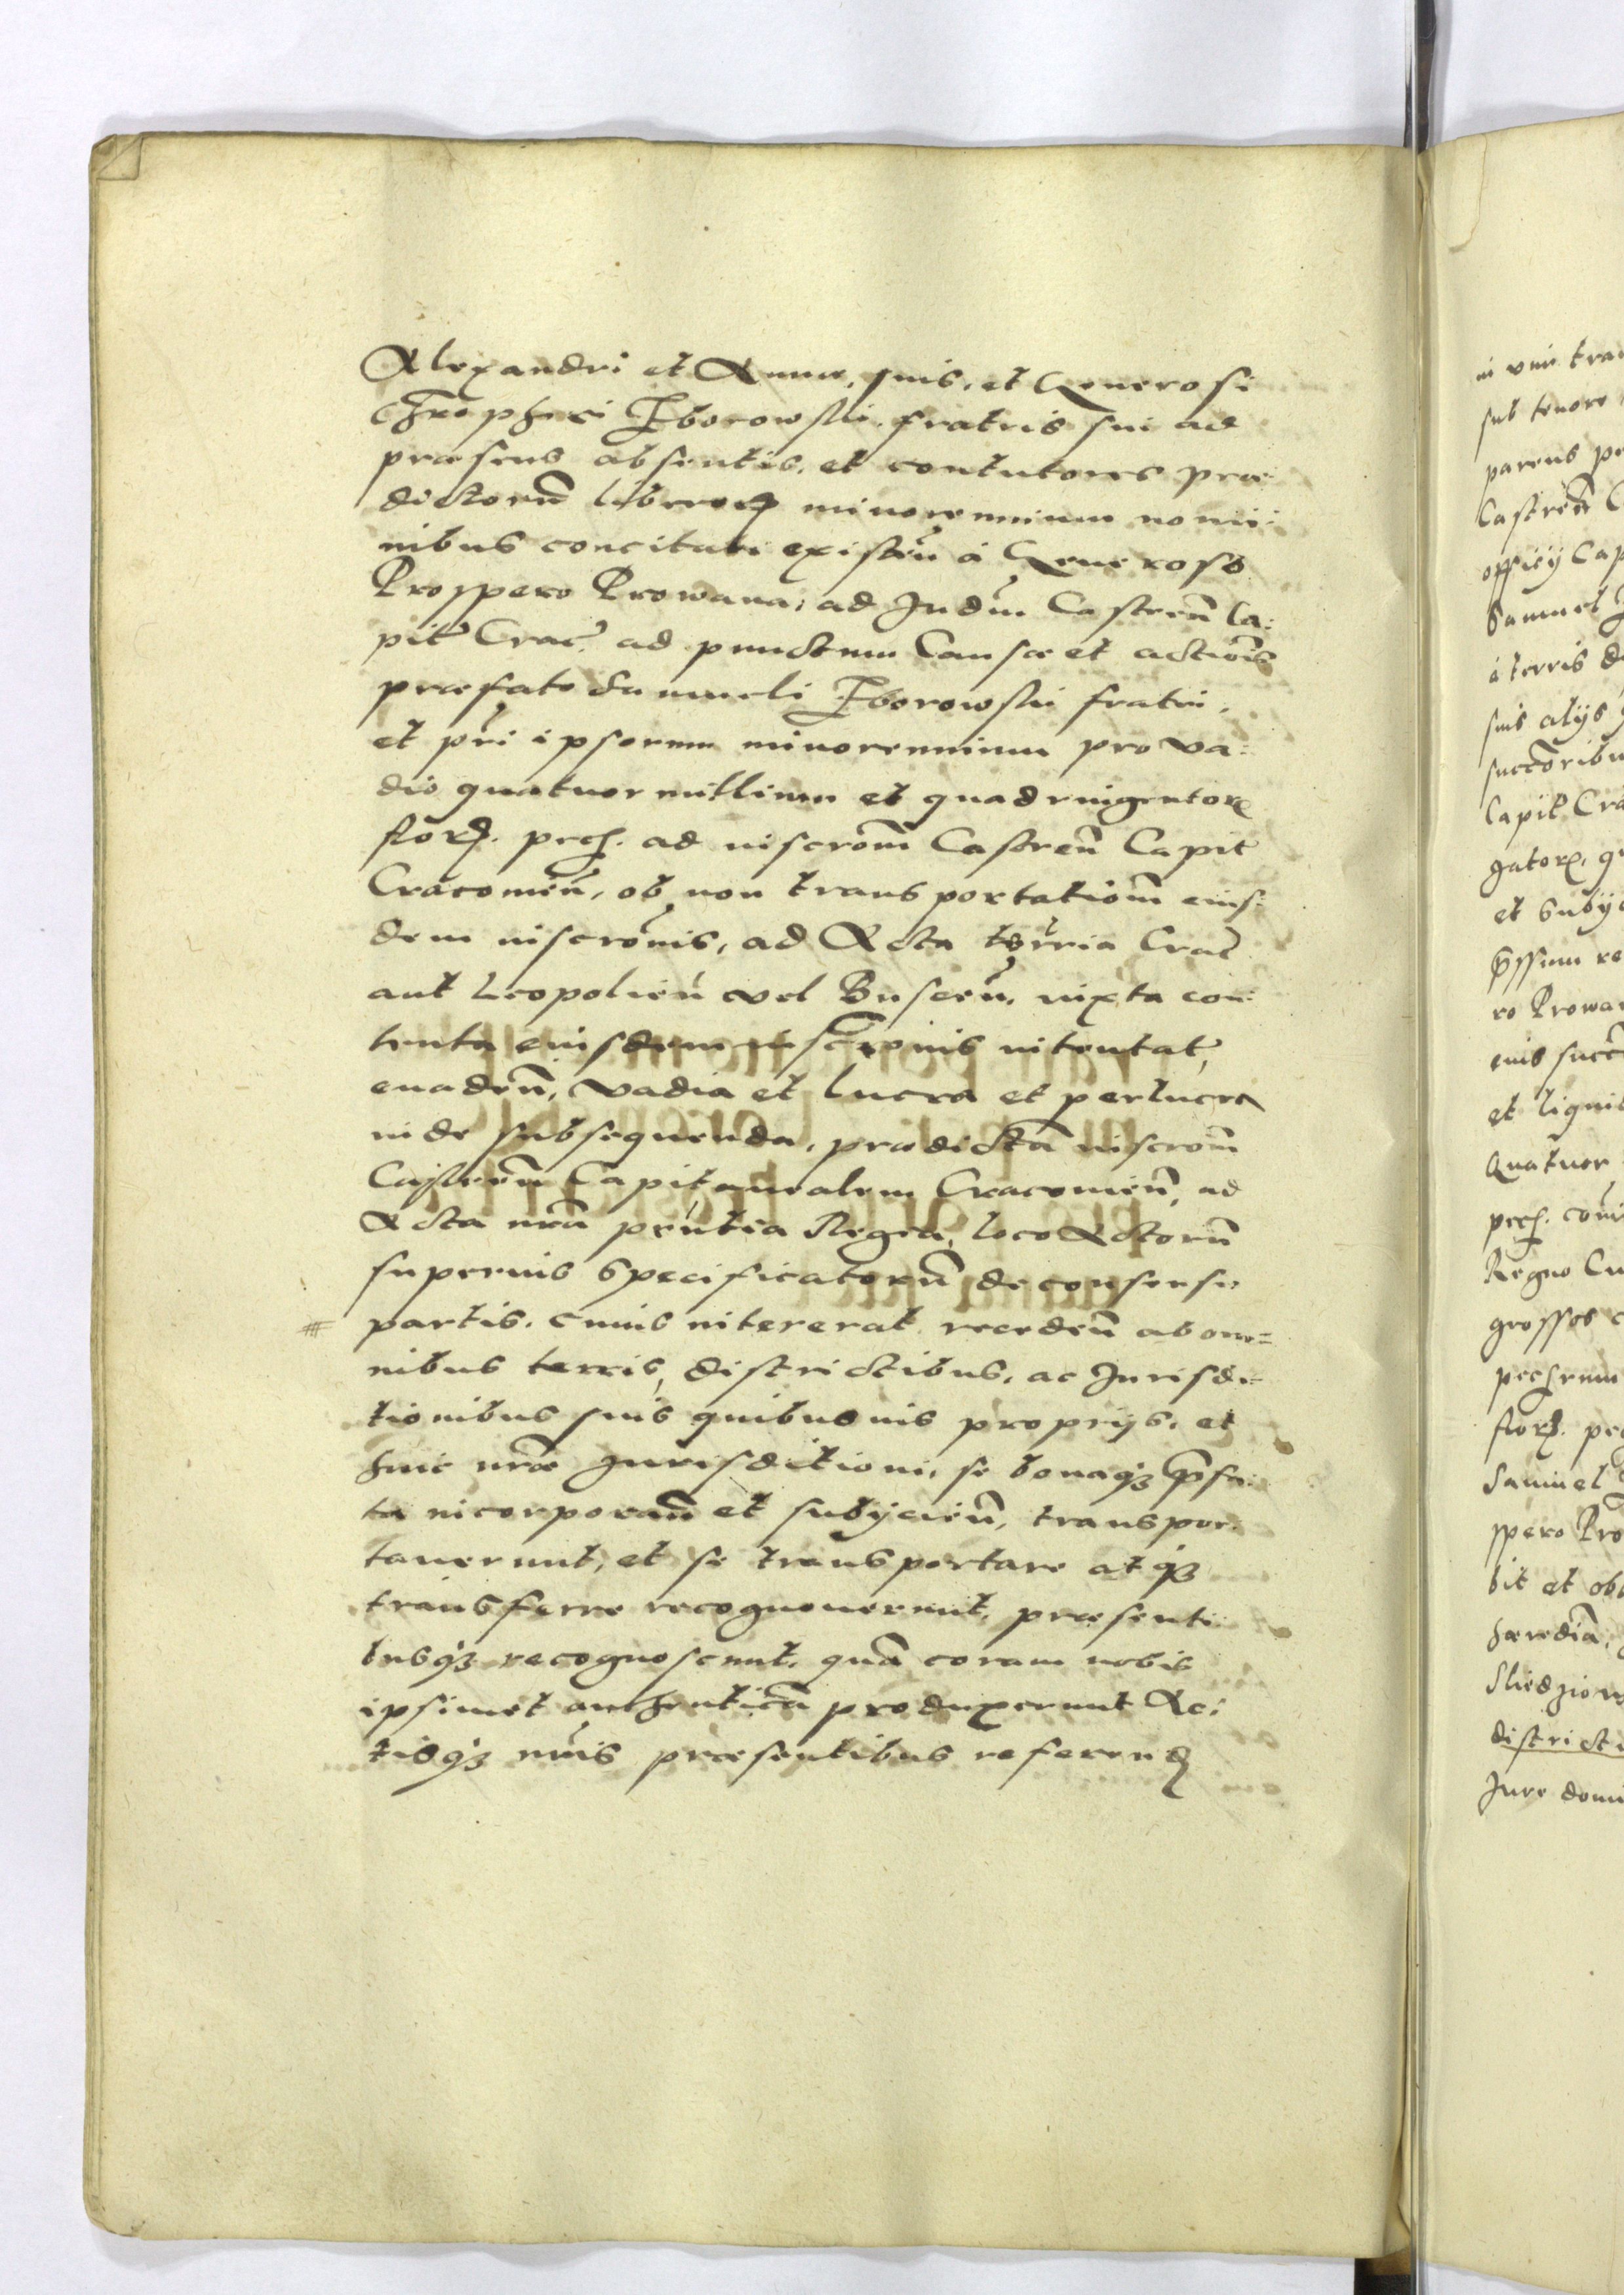 Alexandri et Annæ, suis, et Generosi
Chrophori Zborowski fratris sui ad
præsens absentis, et contutores præ
dictorũ liberorꝝ minorennium nomi
nibus concitati existeñ à Generoso
Prospero Prowana, ad Judm̃ Castreñ Ca:
pit Crac. ad punctum Causæ et actiõis
præfato Samueli Zborowski fratri,
et pr̃i ipsorum minorennium pro va:
dio quatuor millium et quadringentorꝝ
florꝫ. pecꝫ. ad inscrõm Castreñ Capit
Cracovieñ, ob non transportatiõm eius:
dem inscrõnis, ad Acta terr̃ia Crac̃
aut Leopolieñ vel Busceñ, iuxta con:
tenta eiusdem inscrõnis intentat,
evadeñ, vadia et lucra et perlucra
inde subsequenda, prædictã inscrõm
Castreñ Capitanealem Cracovieñ, ad
Acta nr̃a pr̃ntia Regia, loco Actorũ
superius specificatorũ de consensu
partis, cuius intererat recedeñ ab om=
nibus terris, districtibus, ac Jurisdi=
tionibus suis quibusuis proprijs, et
huic nr̃æ Jurisditioni, se bonaqꝫ p̃fa
ta incorporañ et subijcieñ, transpor
taverunt, et se transportare atqꝫ
transferre recognoverunt, præsenti
busqꝫ recognoscunt, quã coram nobis
ipsimet authenticã produxerunt Ac:
tisqꝫ nr̃is præsentibus referendꝫ
in vim tra
sub tenore
parens
Castreñ C
officij Cap
Samuel
à terris d
suis alijs
succõribu
Capit Cra
gatorꝝ, q
et subij
p̃ssum re
ro Prowa
eius succ
et liquid
Quatuor
pecꝫ. com
Regno Cu
grossos
pechrum
florꝫ. pe
Samuel
spero Pro
bit et ob
hæredia
Sliedzio
districtu
Jure dom